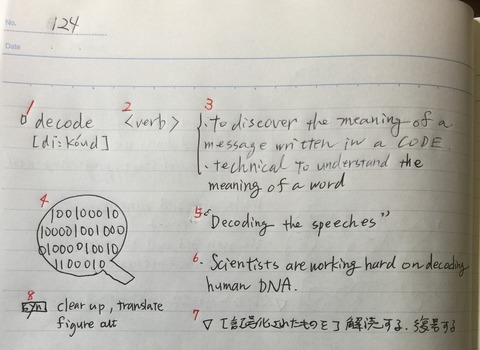 No. 124
Date
1 2 3
decode <verb> · to discover the meaning of a
[di:kóud] message written in a CODE.
· technical to understand the
meaning of a word
4
100100010
100001001000
01000010010
1100010
5 "Decoding the speeches"
6. Scientists are working hard on decoding
human DNA.
8
syn clear up, translate
figure out
7 ▽ [記号化されたものを] 解読する. 復号する